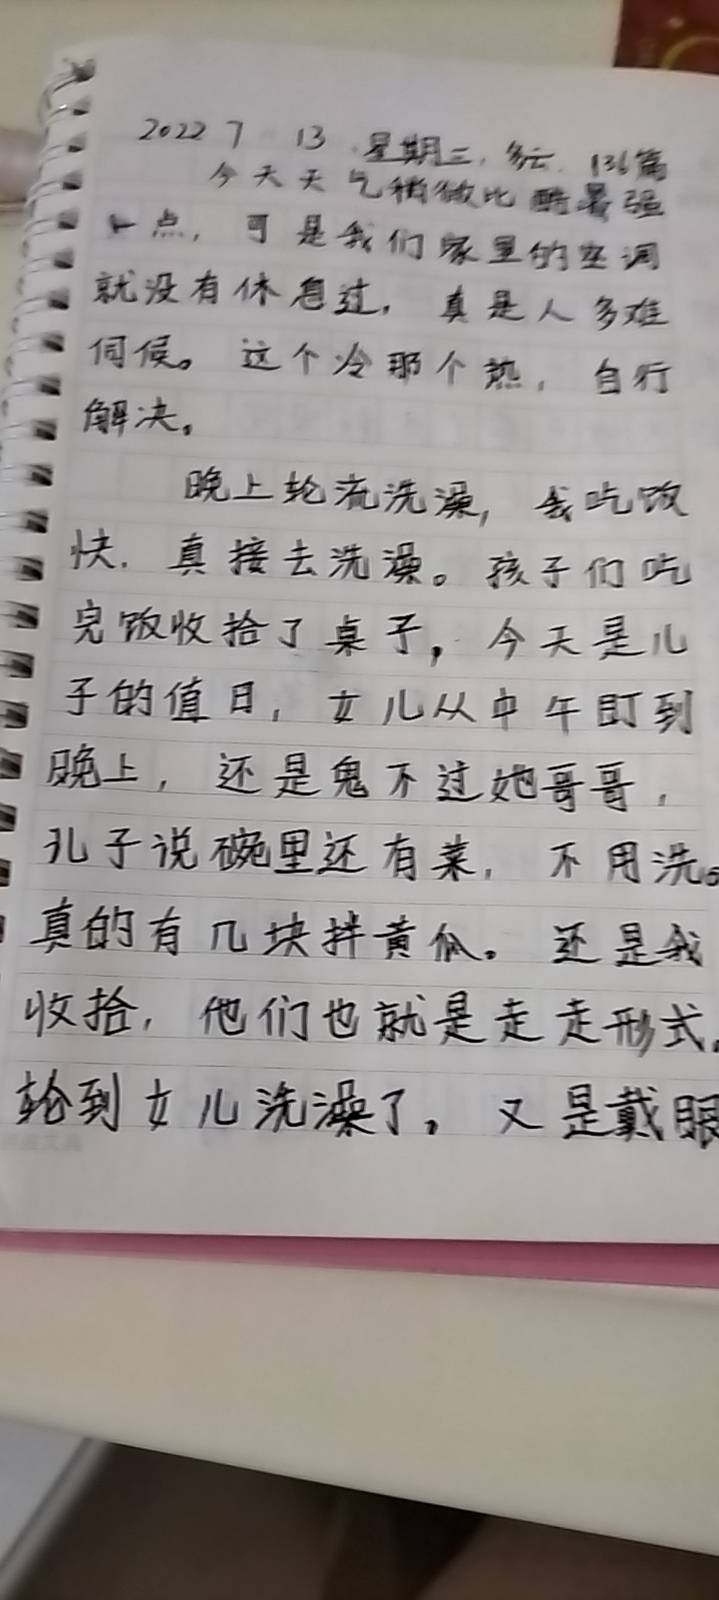 2022 7 13 星期三. 多云. 136篇
今天天气稍微比酷暑强
一点, 可是我们家里的空调
就没有休息过, 真是人多难
伺候。这个冷那个热, 自行
解决。
晚上轮流洗澡, 我吃饭
快. 真接去洗澡。孩子们吃
完饭收拾了桌子, 今天是儿
子的值日, 女儿从中午盯到
晚上, 还是鬼不过她哥哥,
儿子说碗里还有菜, 不用洗。
真的有几块拌黄瓜。还是我
收拾, 他们也就是走走形式。
轮到女儿洗澡了, 又是戴眼